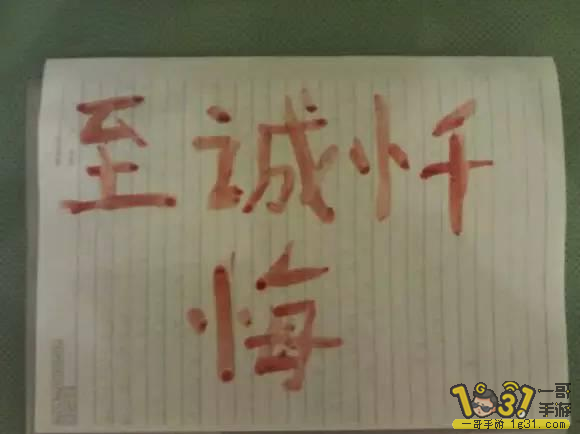 至诚忏
悔
1931
一哥
手游
一哥手游 1g31.com